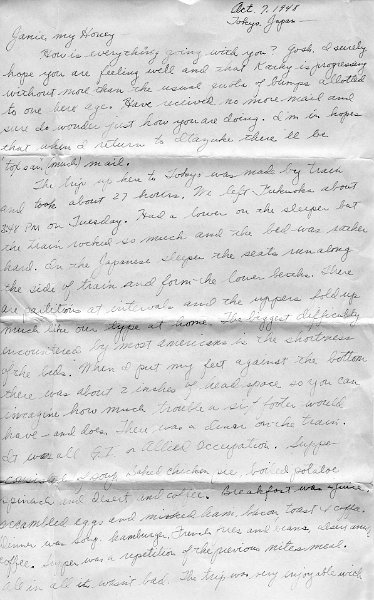 Oct. 7, 1948
Tokyo, Japan
Janie, my Honey
How is everything going with you? Gosh, I surely
hope you are feeling well and that Kathy is progressing
without more than the usual quota of bumps allotted
to one here age. Have received no more mail and
sure do wonder just how you are doing. I'm in hopes
that when I return to Itazuke there'll be
(much) mail.
The trip up here to Tokyo was made by train
and took about 27 hours. We left Fukuoka about
PM on Tuesday. Had a lower on the sleeper but
the train rocked so much and the bed was rather
hard. In the Japanese sleeper the seats run along
the side of train and form the lower berths. There
are partitions at intervals and the uppers fold up
much like our type at home. The biggest difficulty
encountered by most americans is the shortness
of the beds. When I put my feet against the bottom
there was about 2 inches of head space so you can
imagine how much trouble a six footer would
have - and does. There was a diner on the train.
It was all G.I. or Allied Occupation. Supper
consisted of soup, baked chicken pie, boiled potatoe
spinach and desert and coffee. Breakfast was juice,
scrambled eggs and minced ham, bacon toast & coffee.
Dinner was soup, hamburger, French fries and beans, desert and
coffee. Supper was a repetition of the previous nites meal.
All in all it wasn't bad. The trip was very enjoyable with